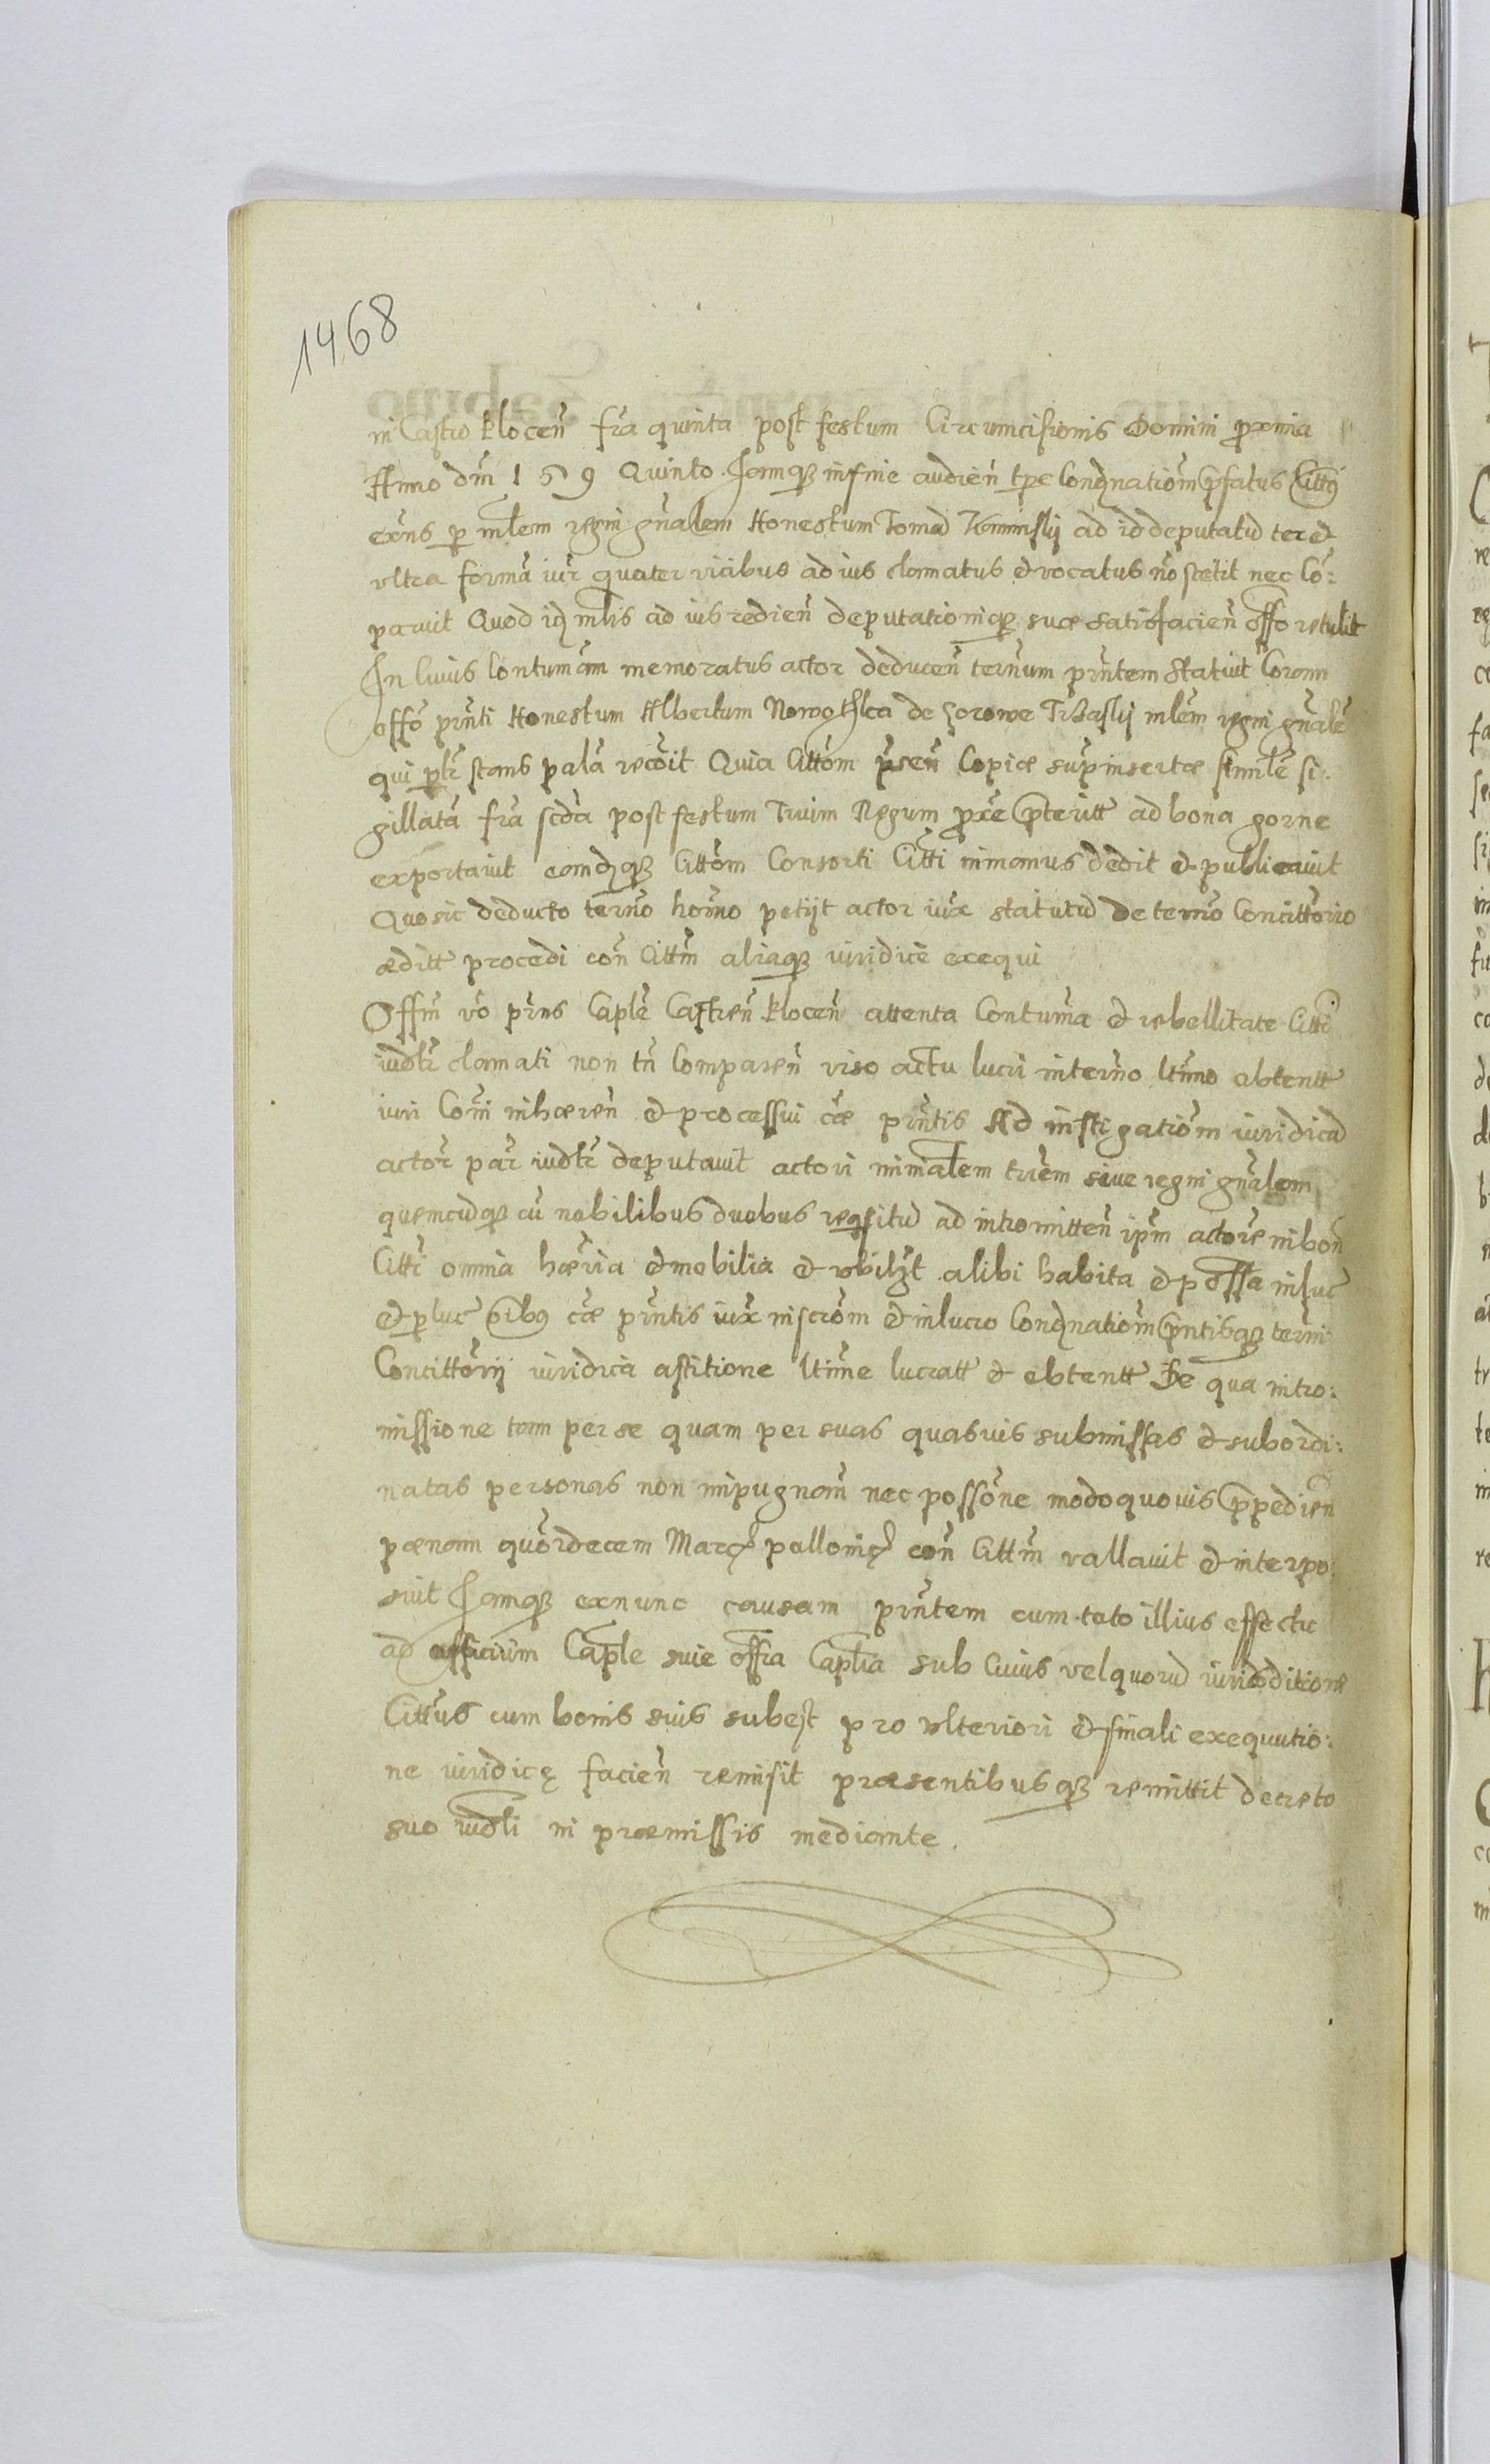 1468
in Castro kłocen̄ fr̃a quinta post festum Circumcisionis Domini proxima
Anno dn̄i 1 5 9 Quinto. Iamqȝ in fine audien̄ tp̄e Condnatiom̄ p̄fatus Citt9
exn̄s p̱ mlem regni gnãlem Honestum Tomã ad id deputatũ ter et
vltra formã iur̃ quater vicibus ad ius clamatus et vocatus nõ stetit nec Cõ:
paruit Quod idē mlis ad ius redien̄ deputationiqȝ suæ satisfacien̄ offo retulit
In Cuius Contumām memoratus actor deducen̄ tern̄um prn̄tem statuit Coram
offõ prn̄ti Honestum Albertum de mlēm regni gnãlē
qui pltr̃ stans palã recōit Quia Cittōm p̄sen̄ Copiæ sup̱insertæ similē si:
gillatã fr̃a scdã post festum Trium Regum pxē p̄teritt ad bona gorne
exportauit eandqȝ Cittōm Consorti Citti in manus dedit et publicauit
Quo sic deducto tern̄o horn̄o petijt actor iux̄ statutũ de tern̄o Concittōrio
æditt procedi con̄ Cittm̄ aliaqȝ iuridicè exequi
Offm̄ vō prn̄s Caplē Castren̄ kłocen̄ attenta Contum̄a et rebellitate Citti
iudltr̄ clamati non tn̄ Comparen̄ viso actu lucri in tern̄o ltimo obtentt
iuri Com̄ inhæren̄ et processui cæ prn̄tis Ad instigatiōm iuridicã
actor̃ par̃ iudltr̄ deputauit actori minialem trēm siue regni gnr̃alem
quemcũqȝ cũ nobilibus duobus reqsitũ ad intromitten̄ ipm̄ actorē in bon̄
Citti omnia hæria et mobilia et vbilȝt alibi habita et possa in luc̄
et p̱ luc̄ oibȝ cæ prn̄tis iux̄ inscrōm et in lucro Condnatiōm p̄ntisqȝ tern̄i
Concittōrij iuridica astitione ltime lucratt et obtentt De qua intro:
missione tam per se quam per suas quasuis submissas et subordi:
natas personas non impugnan̄ nec possōne modo quouis p̄pedien̄
pænam quõrdecem Marcȝ pollonicȝ con̄ Cittm̄ vallauit et interpo:
suit Iamqȝ exnunc causam prn̄tem cum toto illius effectu
ad officium Caple siue offia Caplia sub Cuius vel quorũ iurisditione
Cittus cum bonis suis subest pro vlteriori et finali exequutio:
ne iuridicę facien̄ remisit præsentibusqȝ remittit decreto
suo iudli in præmissis mediante.